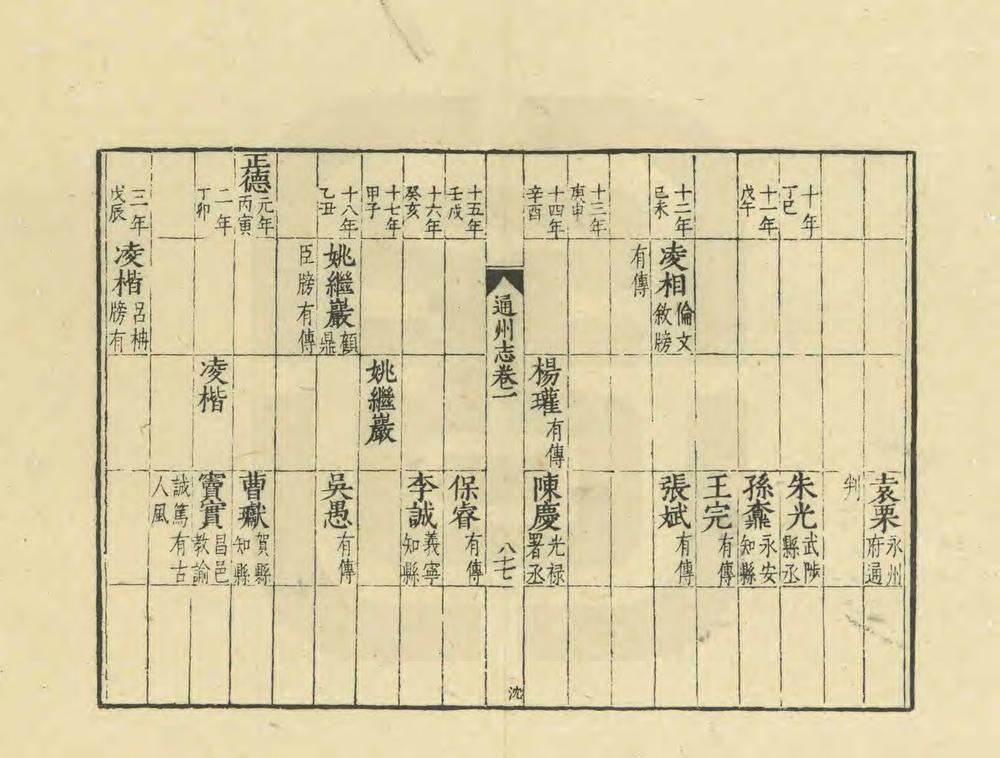 袁栗 永州府通
判
十年丁巳 朱光 武陟縣丞
十一年戊午 孫纛 永安知縣
王完 有傳
十二年己未 凌相 倫文敘牓 張斌 有傳
有傳
十三年庚申
十四年辛酉 楊瓘 有傳 陳慶 光祿署丞
通州志卷一 八十七 沈
十五年壬戌 保睿 有傳
十六年癸亥 李誠 義寧知縣
十七年甲子 姚繼巖
十八年乙丑 姚繼巖 顧鼎 吳愚 有傳
臣牓有傳
正德元年丙寅 曹獄 賀縣知縣
二年丁卯 凌楷 竇實 昌邑教諭
誠篤有古人風
三年戊辰 凌楷 呂柟牓有